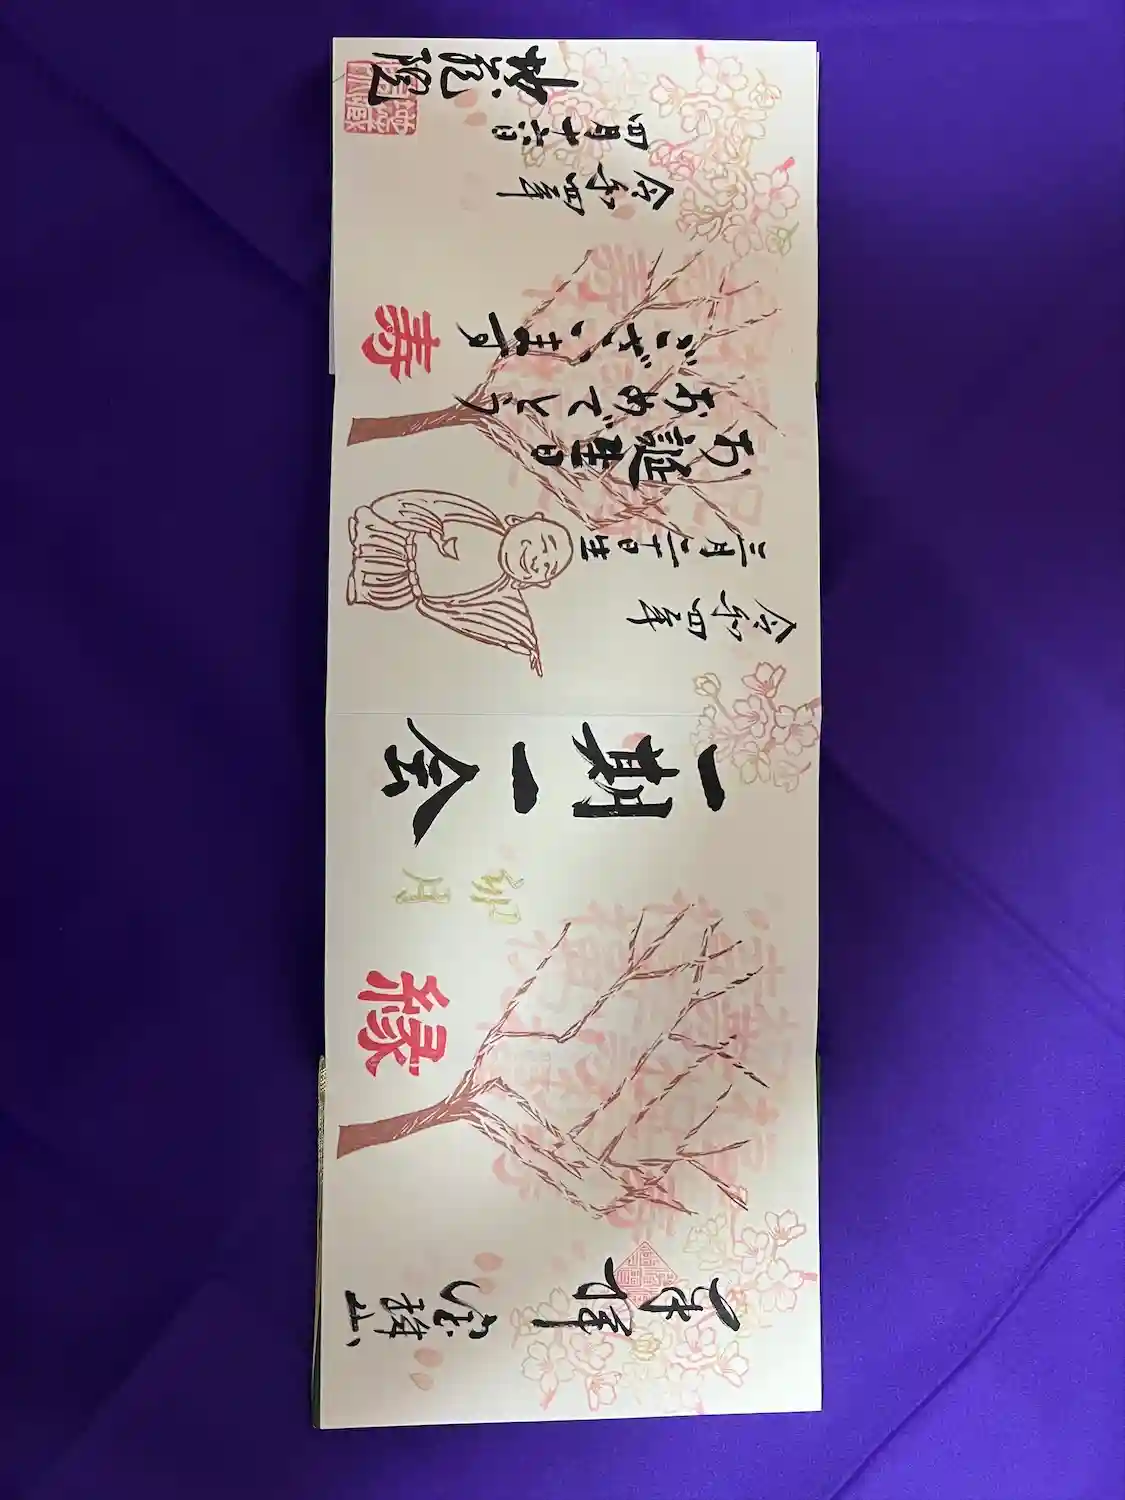 奉拝
縁
卯月
一期一会
令和四年
三月二十日生
お誕生日
おめでとう
ございます
寿
令和四年
四月十六日
妙龍院